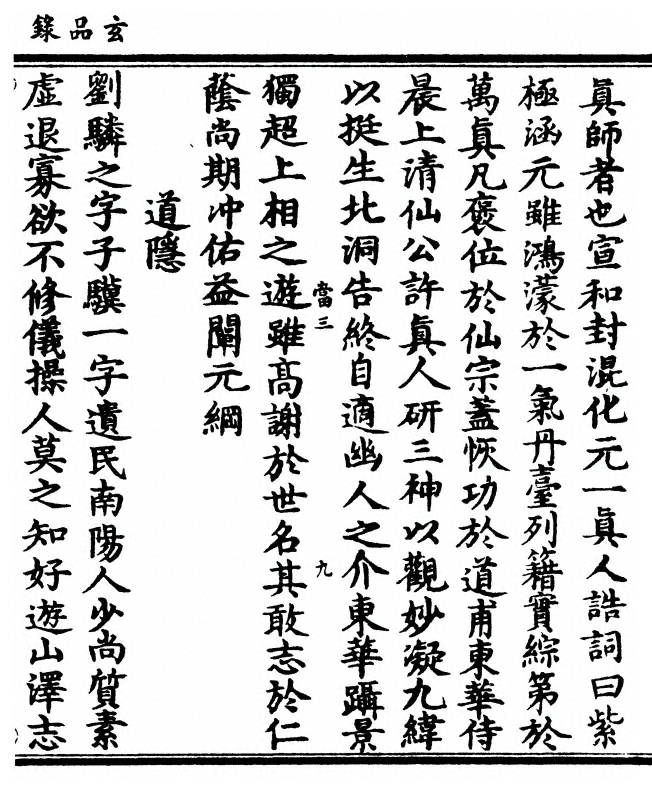 玄品錄
真師者也宣和封混化元一真人誥詞曰紫
極涵元雖鴻濛於一氣丹臺列籍實綜第於
萬真凡褒位於仙宗蓋恢功於道甫東華侍
晨上清仙公許真人研三神以觀妙凝九緯
以挺生北洞告終自適幽人之介東華躡景
當三
九
獨超上相之遊雖高謝於世名其敢志於仁
蔭尚期沖佑益闡元綱
道隱
劉驎之字子驥一字遺民南陽人少尚質素
虛退寡欲不修儀操人莫之知好遊山澤志